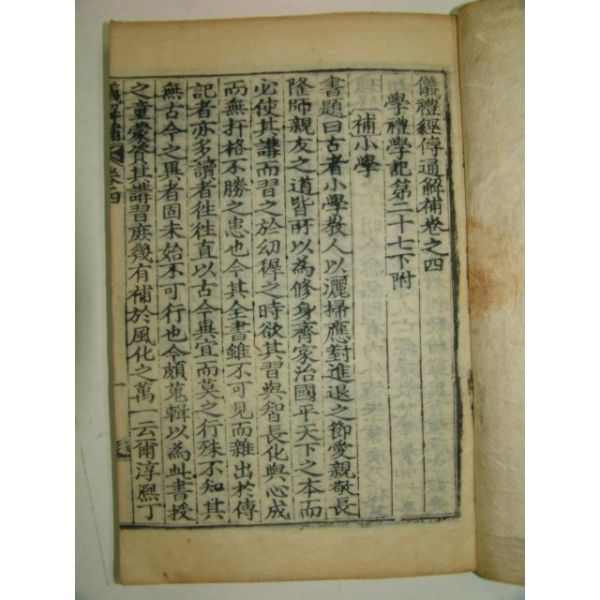 儀禮經傳通解補卷之四
學禮學記第二十七下附
補小學
書題曰古者小學教人以灑掃應對進退之節愛親敬長
隆師親友之道皆所以為修身齊家治國平天下之本而
必使其講而習之於幼穉之時欲其習與智長化與心成
而無扞格不勝之患也今其全書雖不可見而雜出於傳
記者亦多讀者往往直以古今異宜而莫之行殊不知其
無古今之異者固未始不可行也今頗蒐輯以為此書授
之童蒙資其講習庶幾有補於風化之萬一云爾淳熙丁
解補 卷四